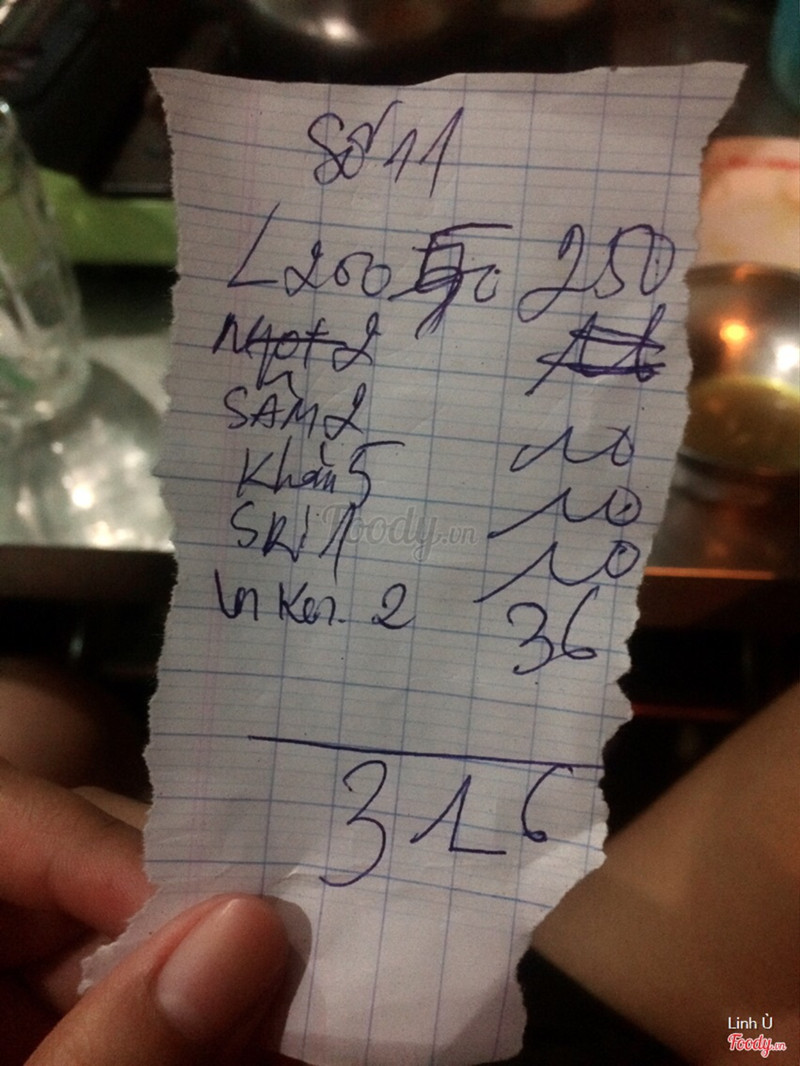 Số 11
L 200 50 250
Ngọt 2
SÂM 2 10
Khăn 5 10
SRi 1 10
Ken 2 36
316
Foody.vn
Linh Ủ
Foody.vn